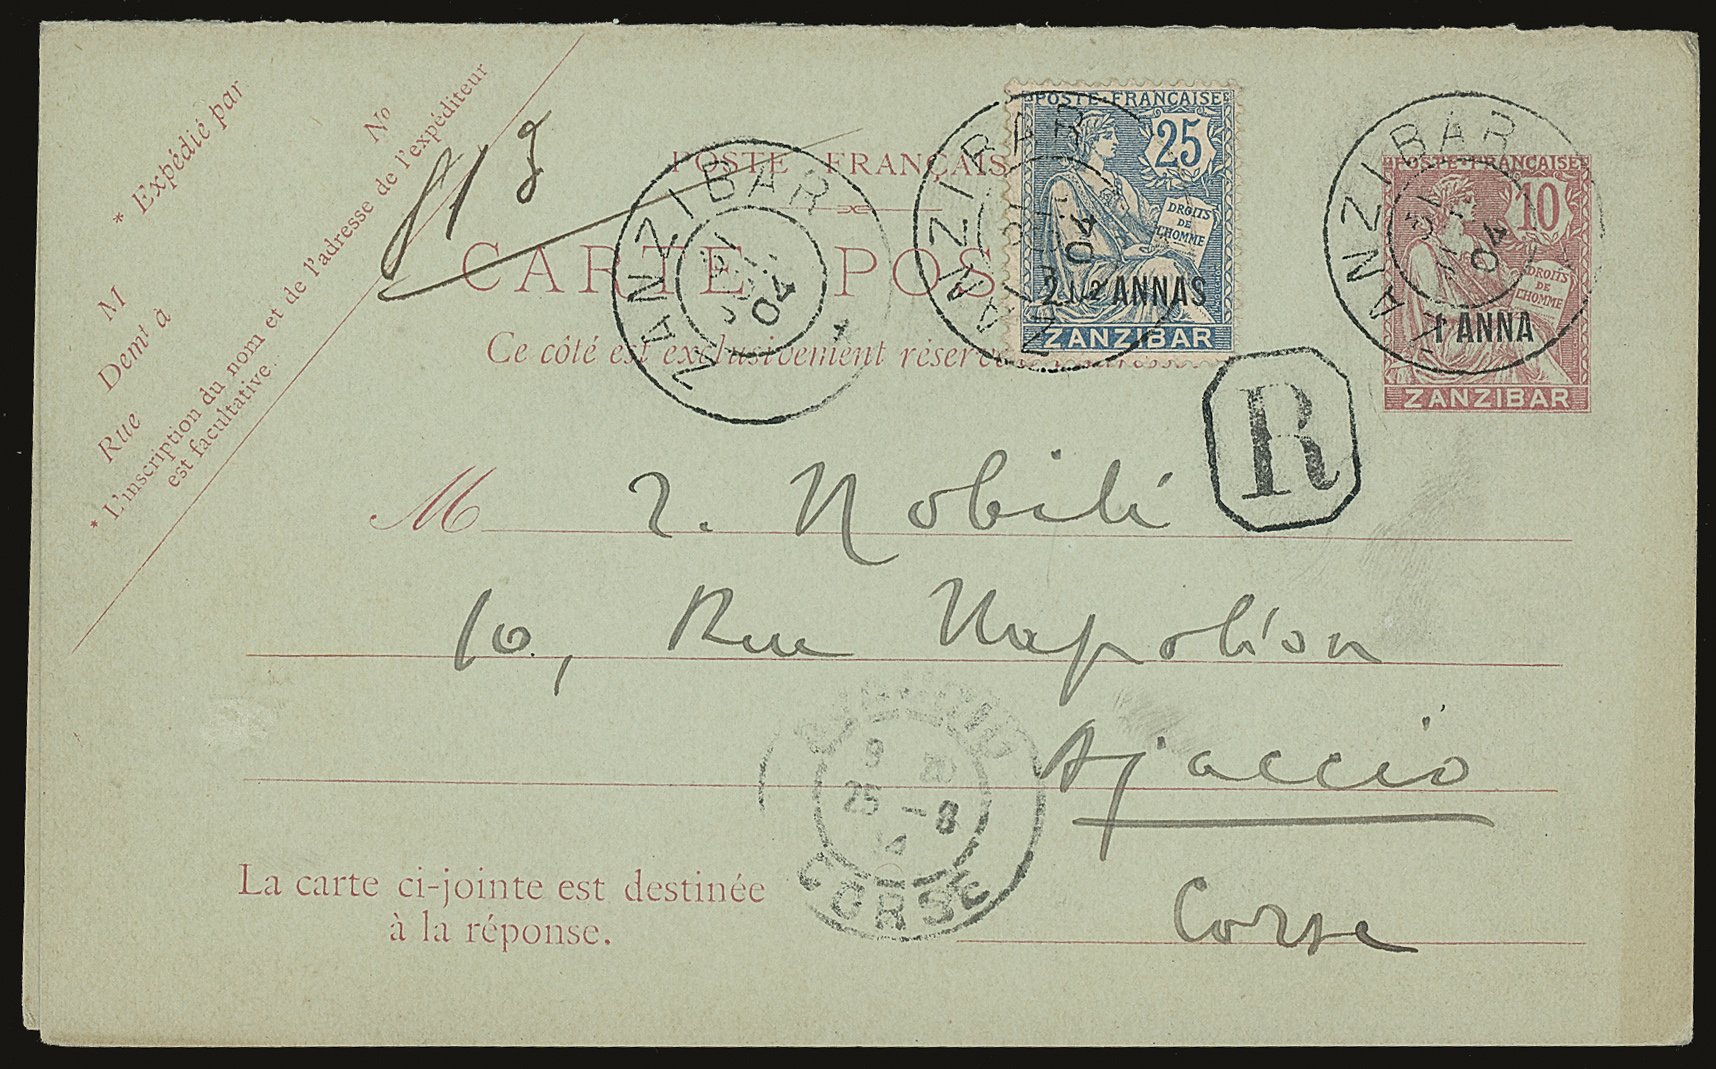 * Expédié par
M
Demt à
Rue
No
* L'inscription du nom et de l'adresse de l'expéditeur
est facultative.
POSTE FRANÇAIS
CARTE POS
Ce côté est exclusivement réservé
ZANZIBAR
31 JUIL
04
ZANZIBAR
04
POSTE FRANÇAISE
25
DROITS
DE
L'HOMME
2 1/2 ANNAS
ZANZIBAR
ZANZIBAR
31
04
POSTE FRANÇAISE
10
DROITS
DE
L'HOMME
1 ANNA
ZANZIBAR
R
M
Nobili
10, Rue Napoléon
Ajaccio
Corse
AJACCIO
25 - 8
CORSE
La carte ci-jointe est destinée
à la réponse.